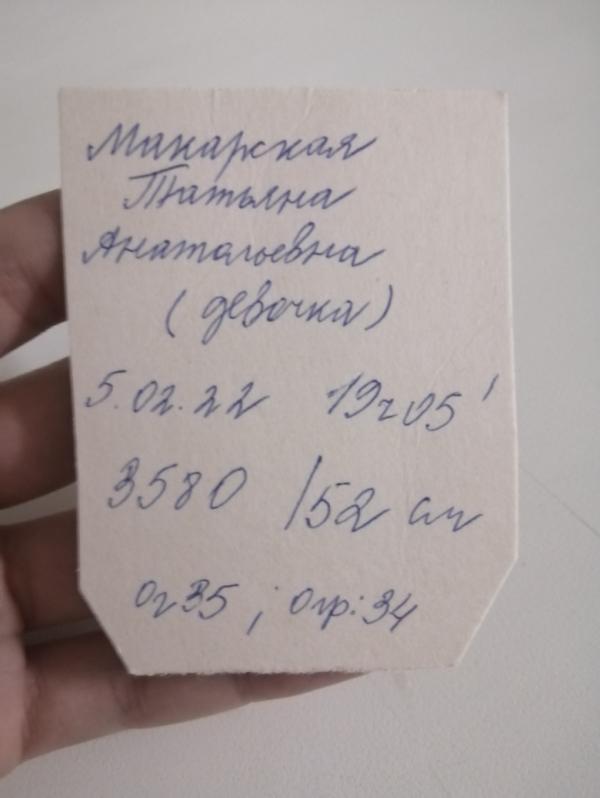 Макарская
Татьяна
Анатольевна
(девочка)
5.02.22 19ч05'
3580 /52 см
Ог35 ; Огр:34